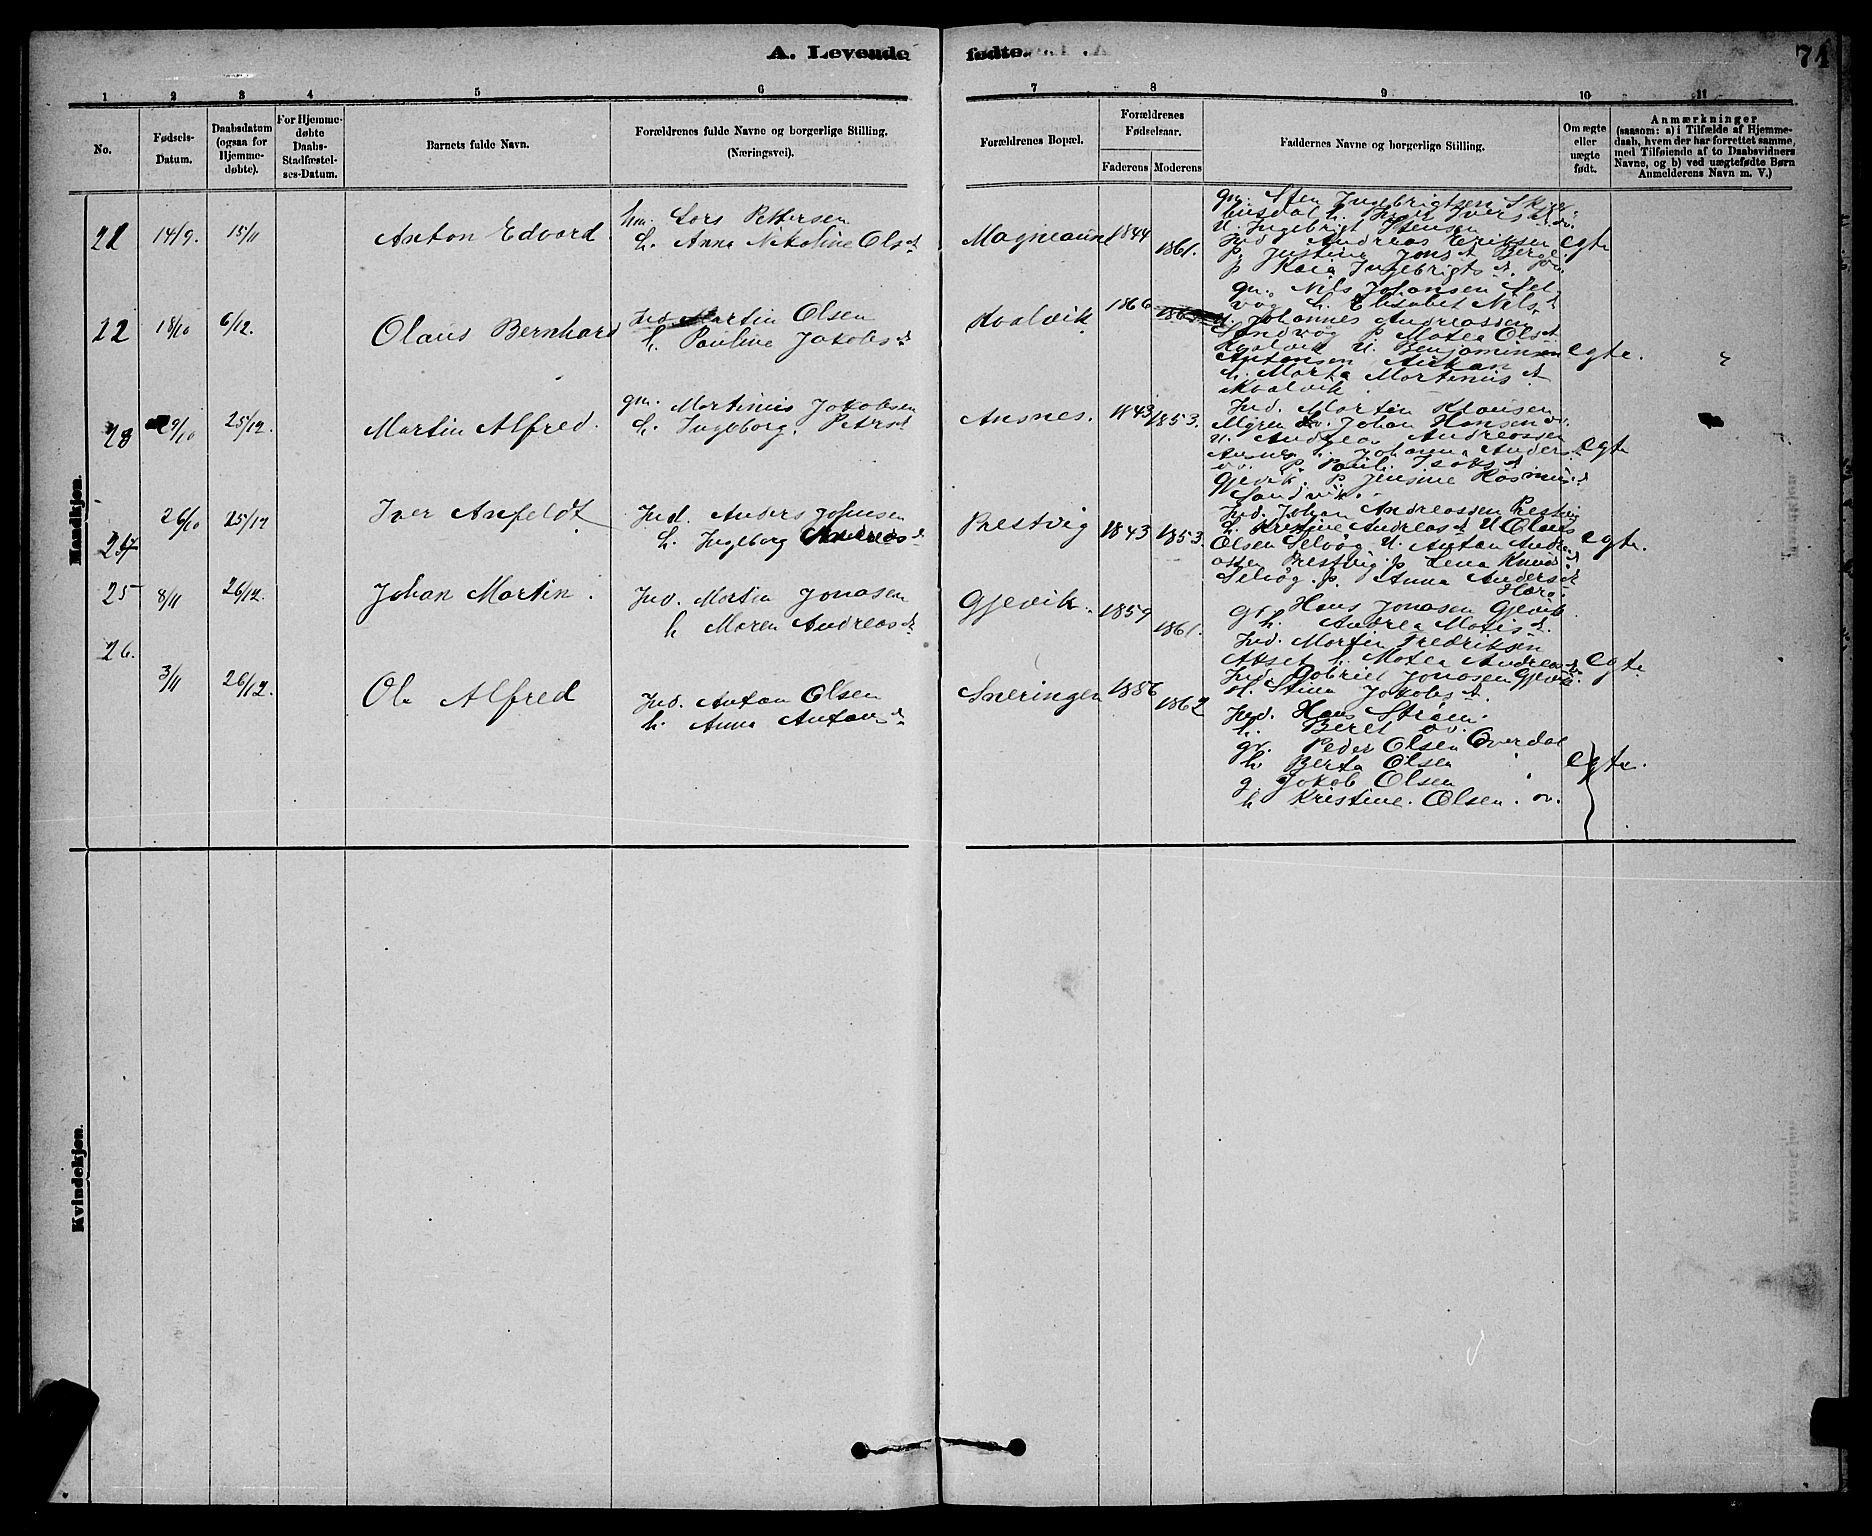 A. Levende fødte. 74
1 2 3 4 5 6 7 8 9 10 11
No.
Fødsels-
Datum.
Daabsdatum
(ogsaa for
Hjemme-
døbte).
For Hjemme-
døbte
Daabs-
Stadfæstel-
ses-Datum.
Barnets fulde Navn.
Forældrenes fulde Navne og borgerlige Stilling.
(Næringsvei).
Forældrenes Bopæl.
Forældrenes
Fødselsaar.
Faderens Moderens
Faddernes Navne og borgerlige Stilling.
Om ægte
eller
uægte
født.
Anmærkninger
(saasom: a) i Tilfælde af Hjemme-
daab, hvem der har forrettet samme,
med Tilføiende af to Daabsvidners
Navne, og b) ved uægtefødte Børn
Anmelderens Navn m. V.)
Mandkjøn.
21 14/9. 15/11 Anton Edvard.
hm. Lars Pettersen
h. Anna Nikoline Olsd.
Magneaune 1844 1861.
gm. Sten Ingebrigtsen
U. Ingebrigt Stensen
Ind. Andreas Eriksen
p. Justine Jonsd. Berge
p. Kaia Ingebrigtsd. ov.
egte
22 18/10 6/12. Olaus Bernhard
Ind. Martin Olsen
h. Pauline Jakobsd.
Kvalvik 1866
gm. Nils Johansen Sel-
vög h. Elisabet Nilsd.
U. Johannes Andreassen
Sandvög p. Matea Olsd.
Kvalvik U. Benjaminsen
Antonsen
h. Marta Martinusd.
Kvalvik
egte.
23 29/10 25/12. Martin Alfred.
gm. Martinus Jakobsen
h. Ingeborg. Petersd.
Ansnes. 1843 1853.
Ind. Martin Klausen
Myren Johan Hansen ov.
U. Andreas Andreassen
Ansnes h. Johanna Anders.
ov. p. Isaksd.
Gjevik. p. Jensine Rasmusd.
Sandvik.
egte
24 26/10 25/12 Iver Anfeldt
Ind. Anders Johnsen
h. Ingeborg Andreasd.
Prestvig 1843 1853.
Ind. Johan Andreassen Prestvig
h. Kristine Andreasd. U. Olaus
Olsen Selvög U. Anton Andre-
assen Prestvig p. Lena Knudsd.
Selvög. p. Anna Andersd.
egte.
25 8/11 26/12. Johan Martin.
Ind. Martin Jonasen
h Maren Andreasd.
Gjevik. 1859 1861.
gr. Hans Jonasen Gjevik
h. Andrea Matisd.
Ind. Martin Fredriksen
Akset h. Matea Andreasd.
Ind. Gabriel Jonasen Gjevik.
h. Stina Jakobsd.
egte.
26. 3/11 26/12. Ole Alfred
Ind. Anton Olsen
h. Anna Antonsd.
Sveringen 1856 1862
Ind. Hans Strøm.
h. Beret ov.
gr. Peder Olsen Overdal
h. Berta Olsen
g. Jokob Olsen
h Kristine. Olsen. ov.
egte.
Kvindekjøn.